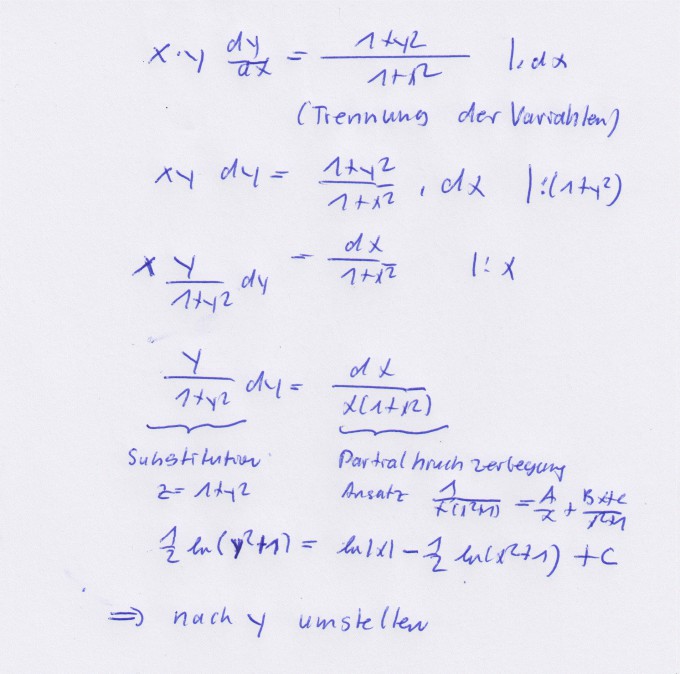 x·y dy/dx = 1+y²/1+x² |·dx
(Trennung der Variablen)
xy dy = 1+y²/1+x² · dx |:(1+y²)
x y/1+y² dy = dx/1+x² |: x
y/1+y² dy = dx/x(1+x²)
Substitution Partialbruchzerlegung
z = 1+y² Ansatz 1/x(x²+1) = A/x + Bx+C/x²+1
1/2 ln(y²+1) = ln|x| - 1/2 ln(x²+1) + C
⇒ nach y umstellen